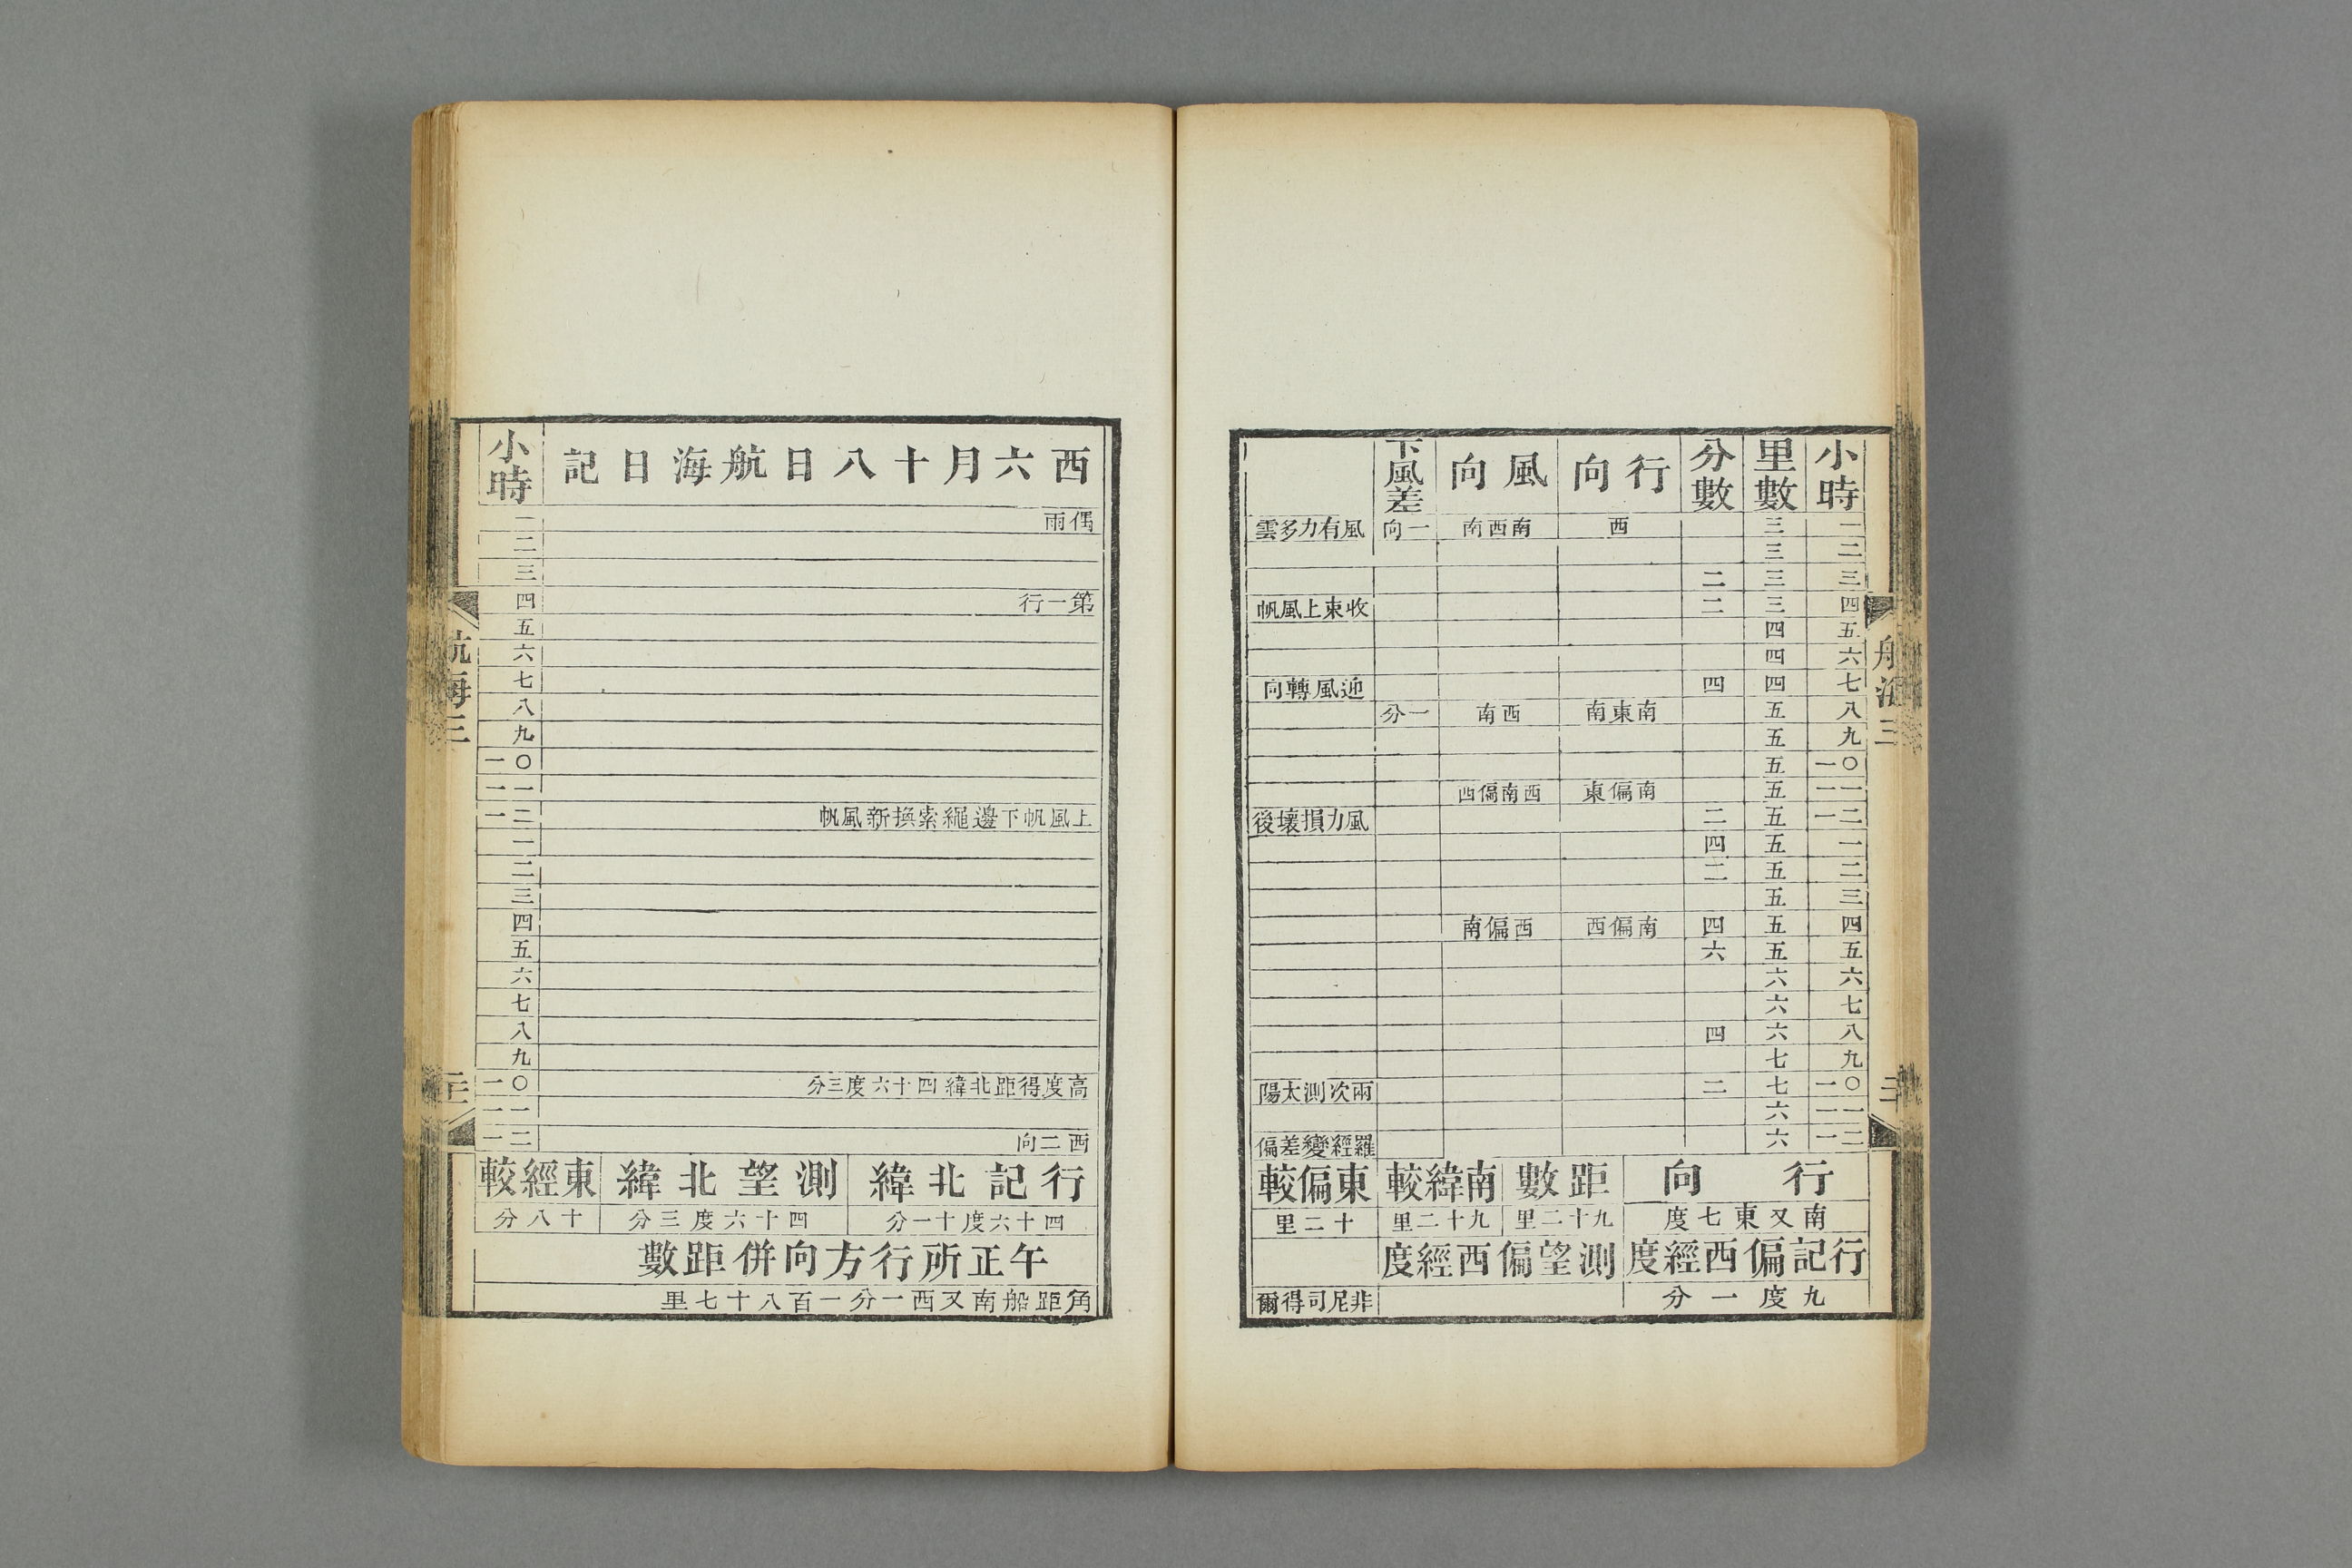 小時 里數 分數 行向 風向 下風差
一 三 西 南西南 一向 風有力多雲
二 三
三 三 二
四 三 二 收束上風帆
五 四
六 四
七 四 四 迎風轉向
八 五 南東南 西南 一分
九 五
一〇 五
一一 五 南偏東 西南偏西
一二 五 二 風力損壞後
一 五 四
二 五 二
三 五
四 五 四 南偏西 西偏南
五 五 六
六 六
七 六
八 六 四
九 七
一〇 七 二 兩次測太陽
一一 六
一二 六 羅經變差偏
行向 距數 南緯較 東偏較
南又東七度 九十二里 九十二里 十二里
行記偏西經度 測望偏西經度
九度一分 非尼司得爾
航海三
西六月十八日航海日記 小時
偶雨 一
二
三
第一行 四
五
六
七
八
九
一〇
一一
上風帆下邊繩索換新風帆 一二
一
二
三
四
五
六
七
八
九
高度得距北緯四十六度三分 一〇
一一
西二向 一二
行記北緯 測望北緯 東經較
四十六度十一分 四十六度三分 十八分
午正所行方向併距數
角距船南又西一分一百八十七里
航海三